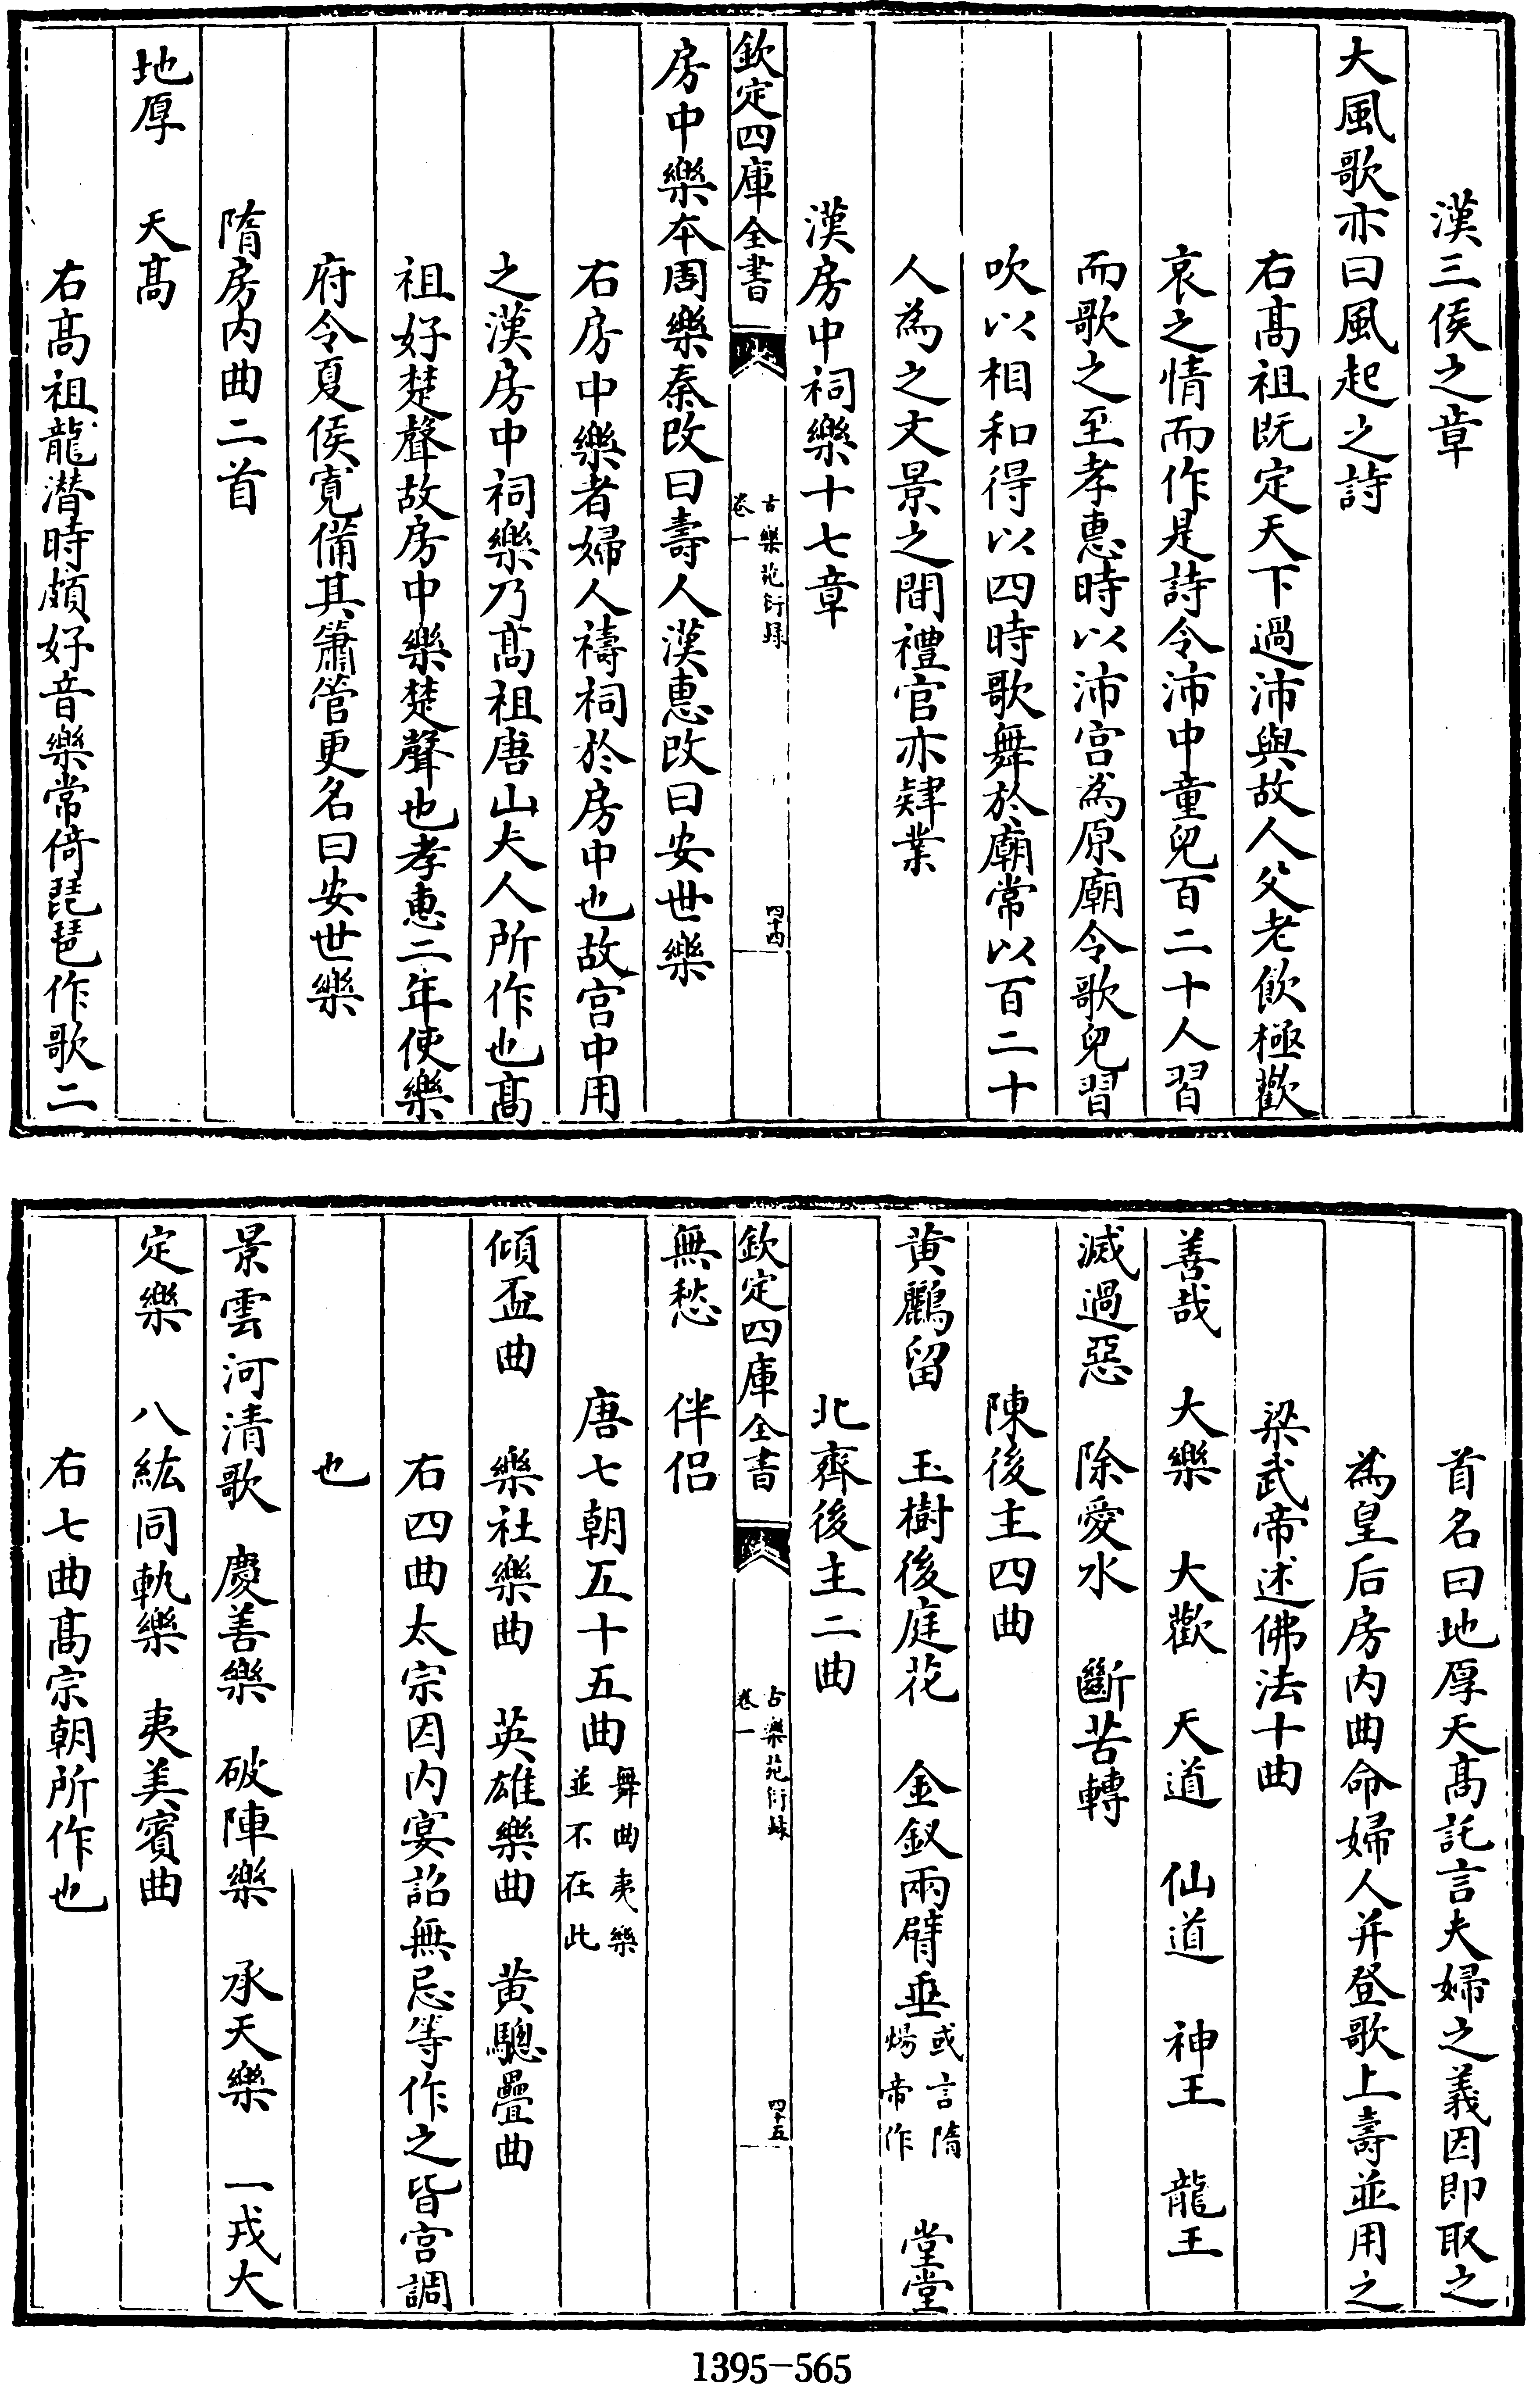 漢三侯之章
大風歌亦曰風起之詩
右髙祖既定天下過沛與故人父老飲極歡
哀之情而作是詩令沛中童兒百二十人習
而歌之至孝惠時以沛宫為原廟令歌兒習
吹以相和得以四時歌舞於廟常以百二十
人為之文景之間禮官亦肄業
漢房中祠樂十七章
欽定四庫全書
古樂苑衍録
卷一
四十四
房中樂本周樂秦改曰壽人漢惠改曰安世樂
右房中樂者婦人禱祠於房中也故宫中用
之漢房中祠樂乃髙祖唐山夫人所作也髙
祖好楚聲故房中樂楚聲也孝惠二年使樂
府令夏侯寛備其簫管更名曰安世樂
隋房内曲二首
地厚 天髙
右髙祖龍潛時頗好音樂常倚琵琶作歌二
首名曰地厚天髙託言夫婦之義因即取之
為皇后房内曲命婦人并登歌上壽並用之
梁武帝述佛法十曲
善哉 大樂 大歡 天道 仙道 神王 龍王
滅過惡 除愛水 斷苦轉
陳後主四曲
黄鸝留 玉樹後庭花 金釵兩臂垂或言隋煬帝作 堂堂
北齊後主二曲
欽定四庫全書
古樂苑衍録
卷一
四十五
無愁 伴侣
唐七朝五十五曲舞曲夷樂並不在此
傾盃曲 樂社樂曲 英雄樂曲 黄驄疊曲
右四曲太宗因内宴詔無忌等作之皆宫調
也
景雲河清歌 慶善樂 破陣樂 承天樂 一戎大
定樂 八紘同軌樂 夷美賓曲
右七曲髙宗朝所作也
1395-565